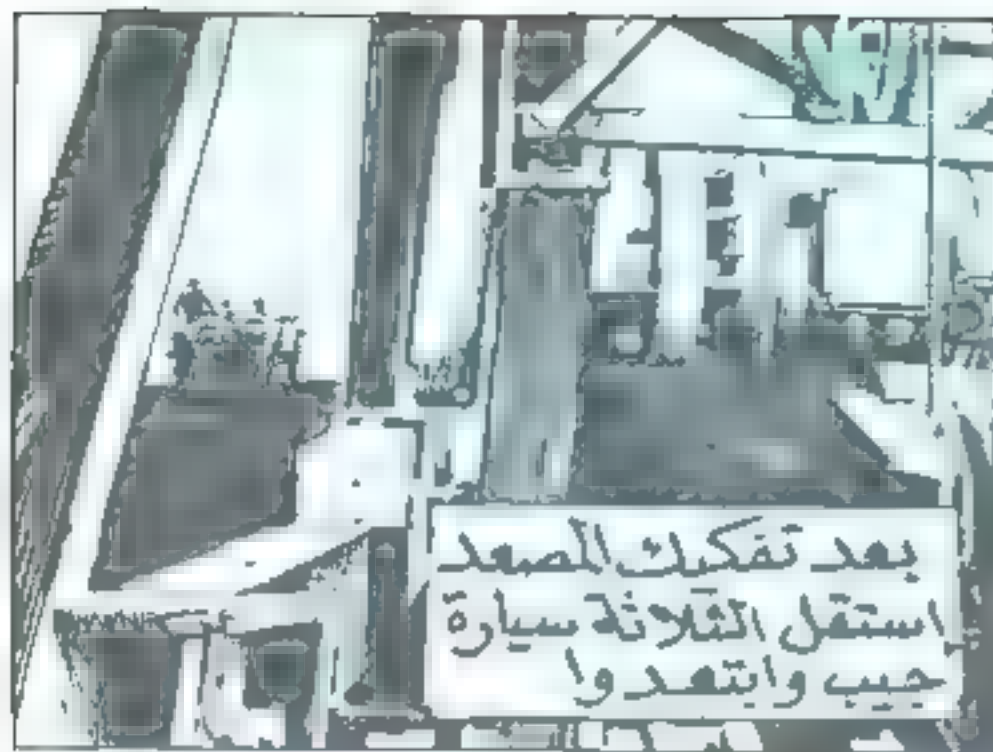 بعد تفكيك المصعد
استقل الثلاثة سيارة
جيب وابتعدوا